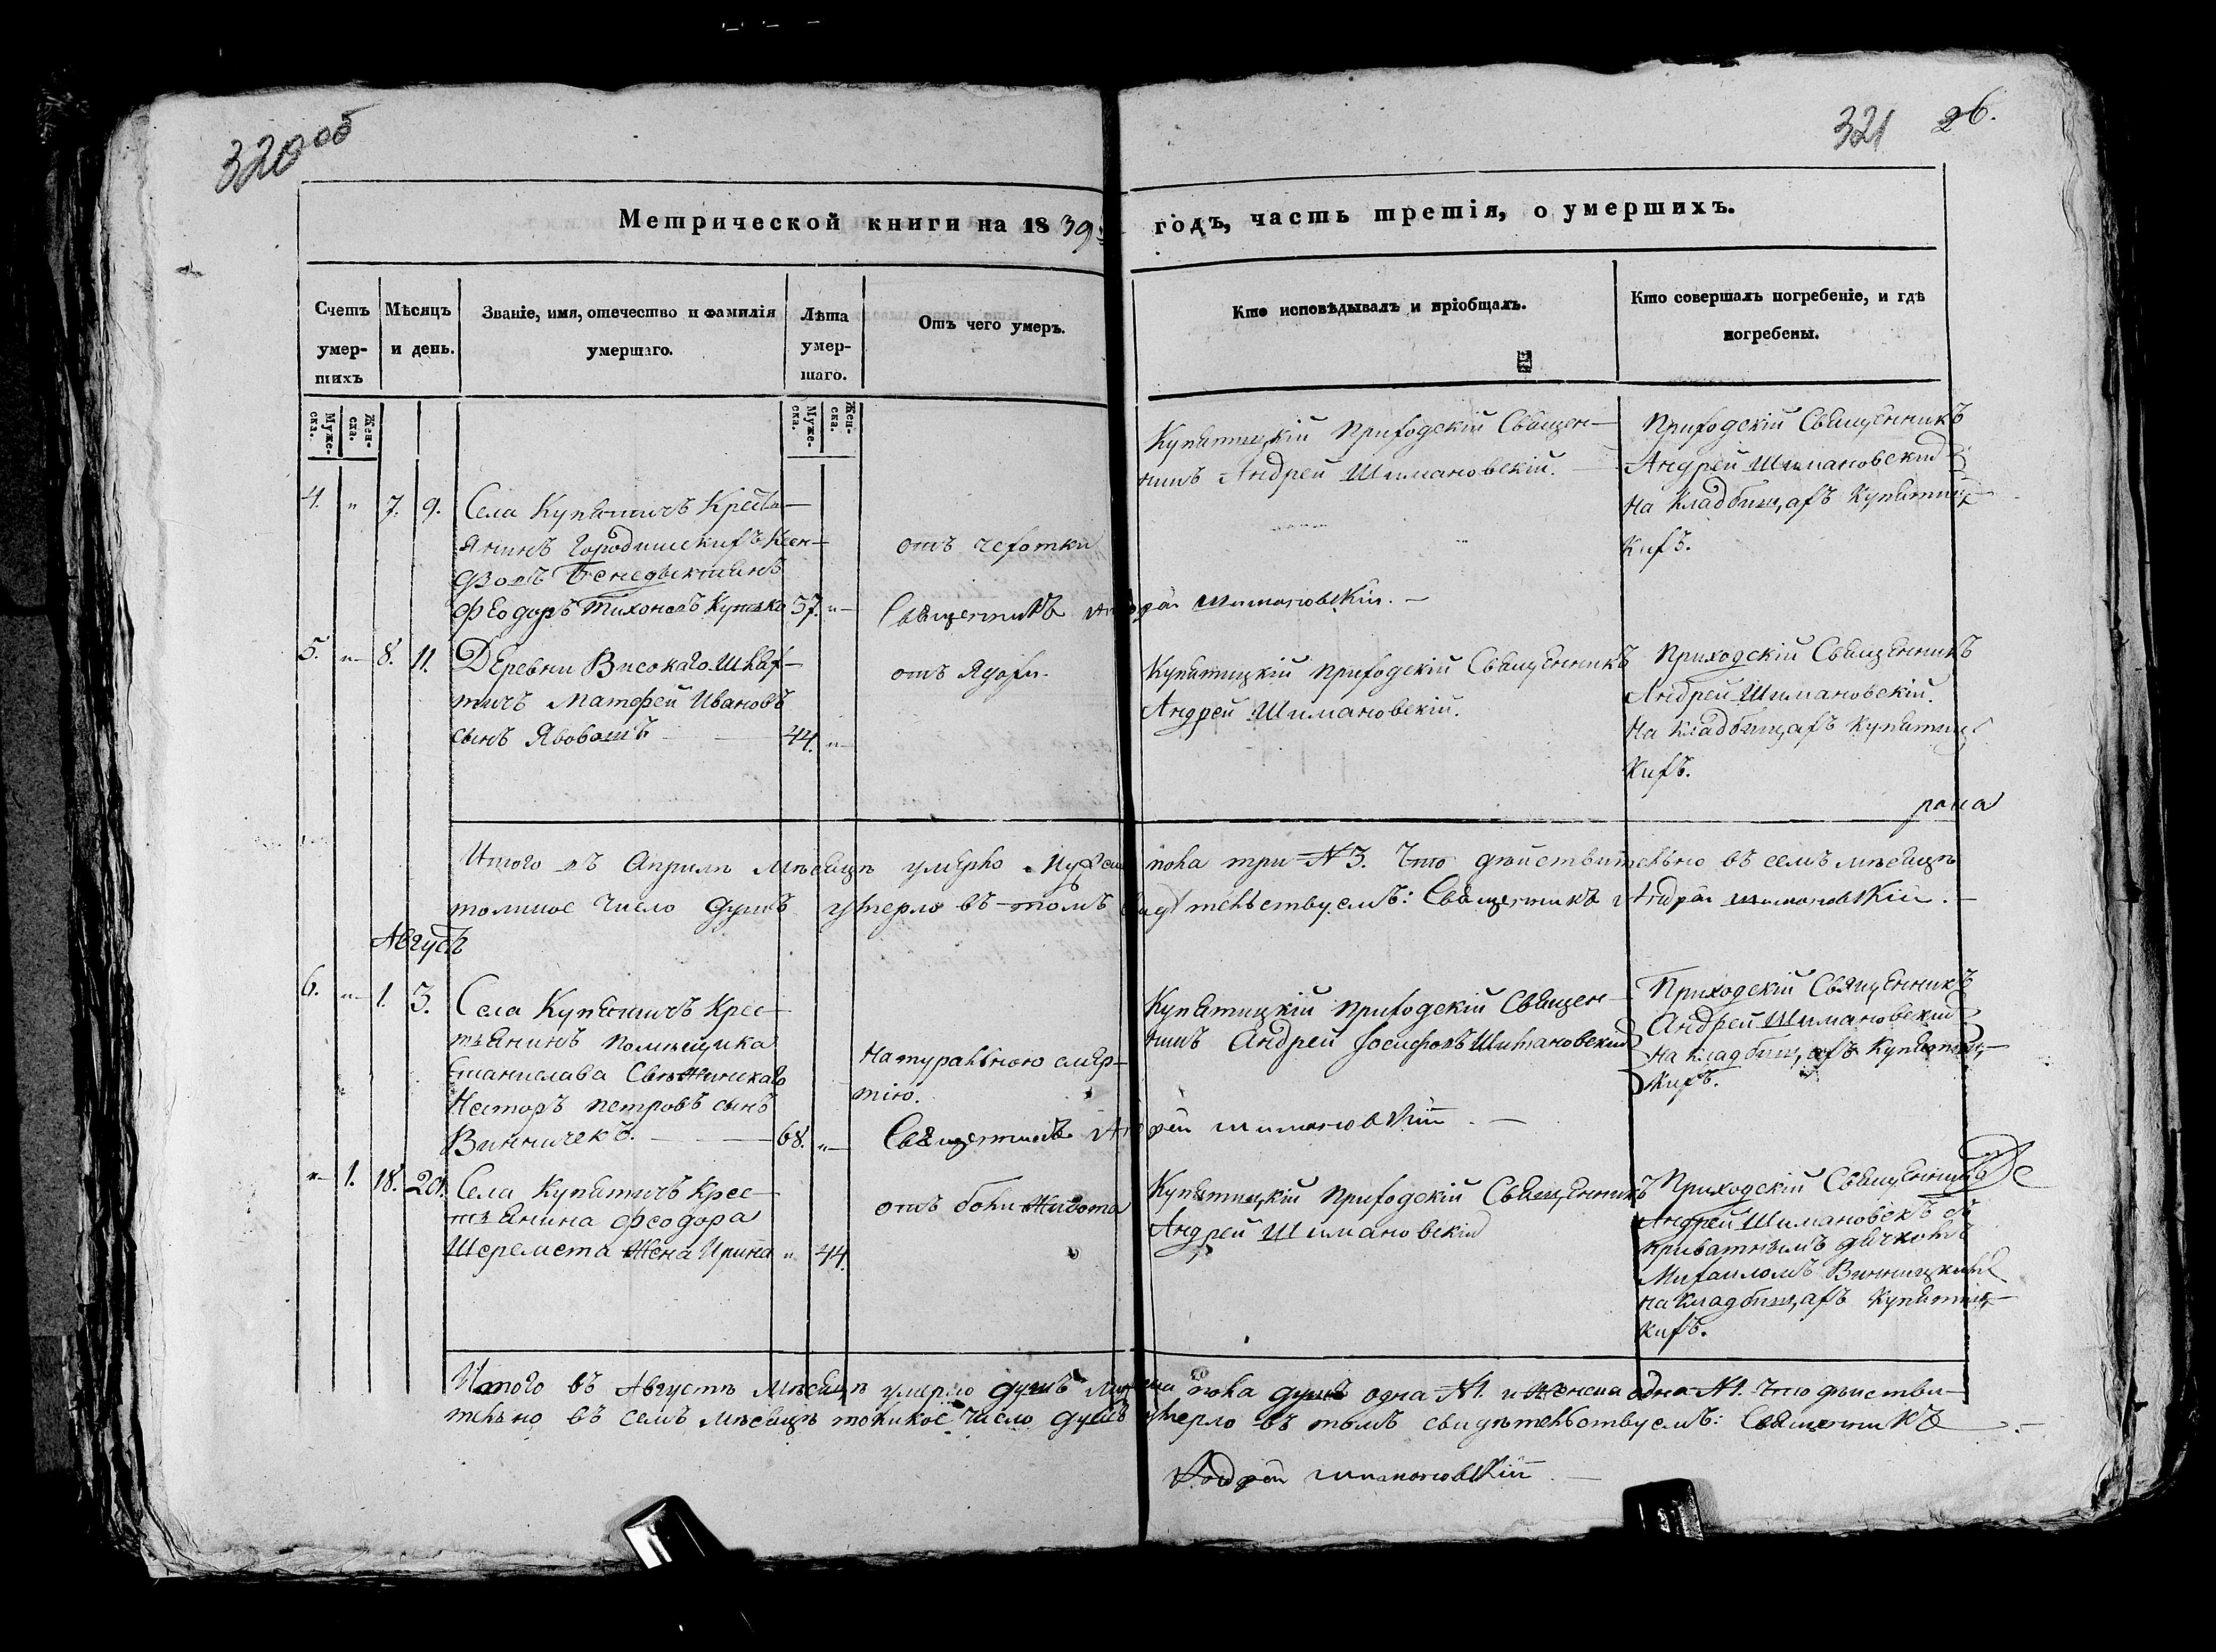 320 об
321 26.
Метрической книги на 1839 годъ, часть третія, о умершихъ.
Счетъ умер-
шихъ
Мѣсяцъ
и день.
Званіе, имя, отечество и фамилія
умершаго.
Лѣта
умер-
шаго.
Отъ чего умеръ.
Кто исповѣдывалъ и пріобщалъ.
Кто совершалъ погребеніе, и гдѣ
погребены.
Муже-
ска.
Жен-
ска.
Муже-
ска.
Жен-
ска.
4. " 7. 9. Села Купятичъ Кресть-
янинъ Городищскихъ Ксен-
Ѳеодоръ Тихоновъ 57. "
отъ чехотки
Купятицкій Приходскій Священ-
никъ Андрей Шимановскій.
Приходскій Священникъ
Андрей Шимановскій
на Кладбищахъ Купятиц-
кихъ.
Священникъ Андрей Шимановскій.
5. " 8. 11. Деревни Високаго
Матфей Ивановъ
сынъ 44. "
отъ
Купятицкій Приходскій Священникъ
Андрей Шимановскій.
Приходскій Священникъ
Андрей Шимановскій.
На Кладбищахъ Купятиц
кихъ.
Итого въ Априлѣ Мѣсяцѣ умерло Мужеска пола три №3. Что дѣйствительно въ семъ мѣсяцѣ
толикое число душъ умерло въ томъ свидѣтельствуемъ: Священникъ Андрей Шимановскій.
Августъ
6. " 1. 3. Села Купятичъ Крес-
тьянинъ помѣщика
Станислава Свѣжинскаго
Несторъ Петровъ сынъ
Винничекъ. 68. "
Натуральною смер-
тію.
Купятицкій Приходскій Священ-
никъ Андрей Іосифовъ Шимановскій
Приходскій Священникъ
Андрей Шимановскій
на кладбищахъ Купятиц-
кихъ.
Священникъ Андрей Шимановскій
" 1. 18. 20. Села Купятичъ Крес-
тьянина Феодора
Шеремета Жена Ирина " 44.
отъ боли Живота
Купятицкій Приходскій Священникъ
Андрей Шимановскій
Приходскій Священникъ
Андрей Шимановскъ съ
приватнымъ дячкомъ
Михаиломъ Винницкимъ
на Кладбищахъ Купятиц-
кихъ.
Итого въ Августѣ Мѣсяцѣ умерло душъ Мужеска пола душъ одна №1. и Женска одна №1. Что дѣйстви-
тельно въ семъ Мѣсяцѣ толикое число душъ умерло въ томъ свидѣтельствуемъ: Священникъ
Андрей Шимановскій